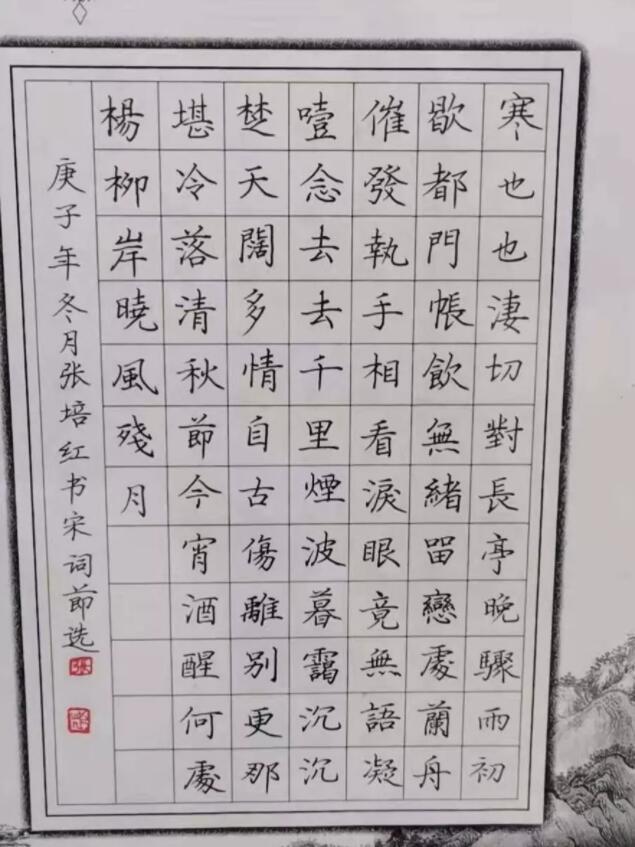 寒也也淒切對長亭晚驟雨初
歇都門帳飲無緒留戀處蘭舟
催發執手相看淚眼竟無語凝
噎念去去千里煙波暮靄沉沉
楚天闊多情自古傷離別更那
堪冷落清秋節今宵酒醒何處
楊柳岸曉風殘月
庚子年冬月张培红书宋词節选